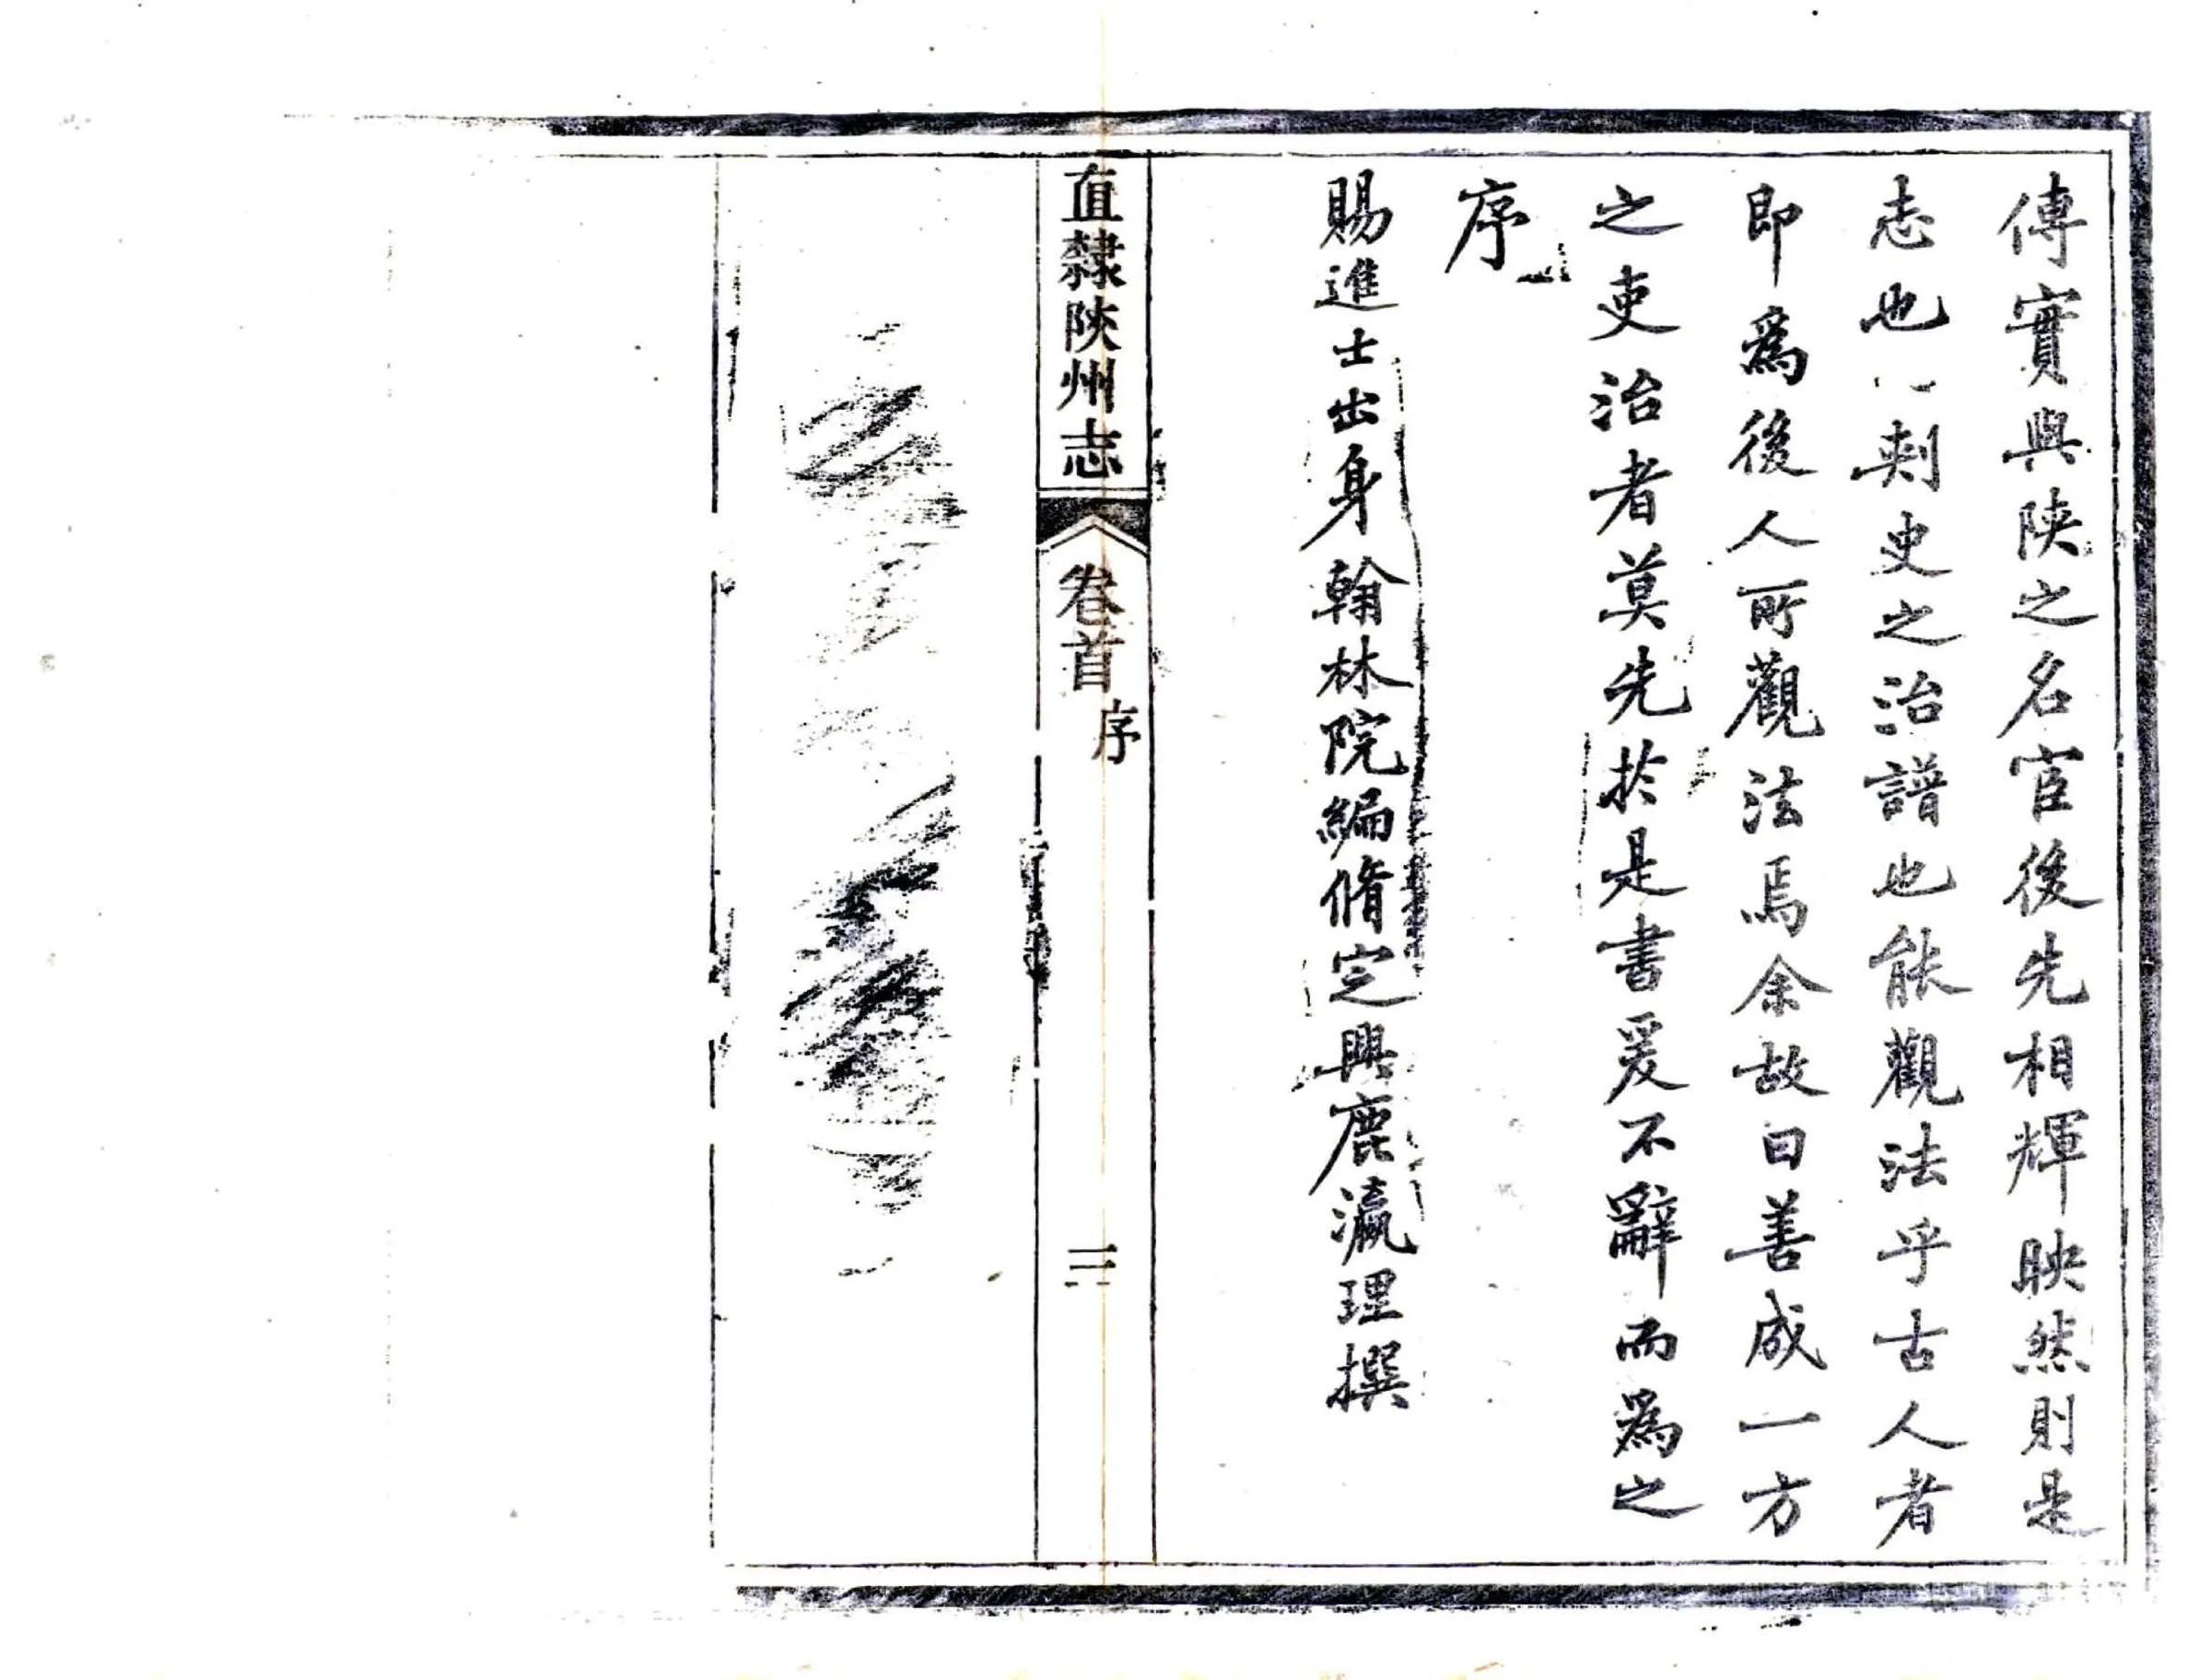 傳實與陝之名宦後先相輝映然則是
志也刺史之治譜也能觀法乎古人者
即為後人所觀法焉余故曰善成一方
之吏治者莫先於是書爰不辭而為之
序
賜進士出身翰林院編脩定興鹿瀛理撰
直隸陝州志 卷首 序 三